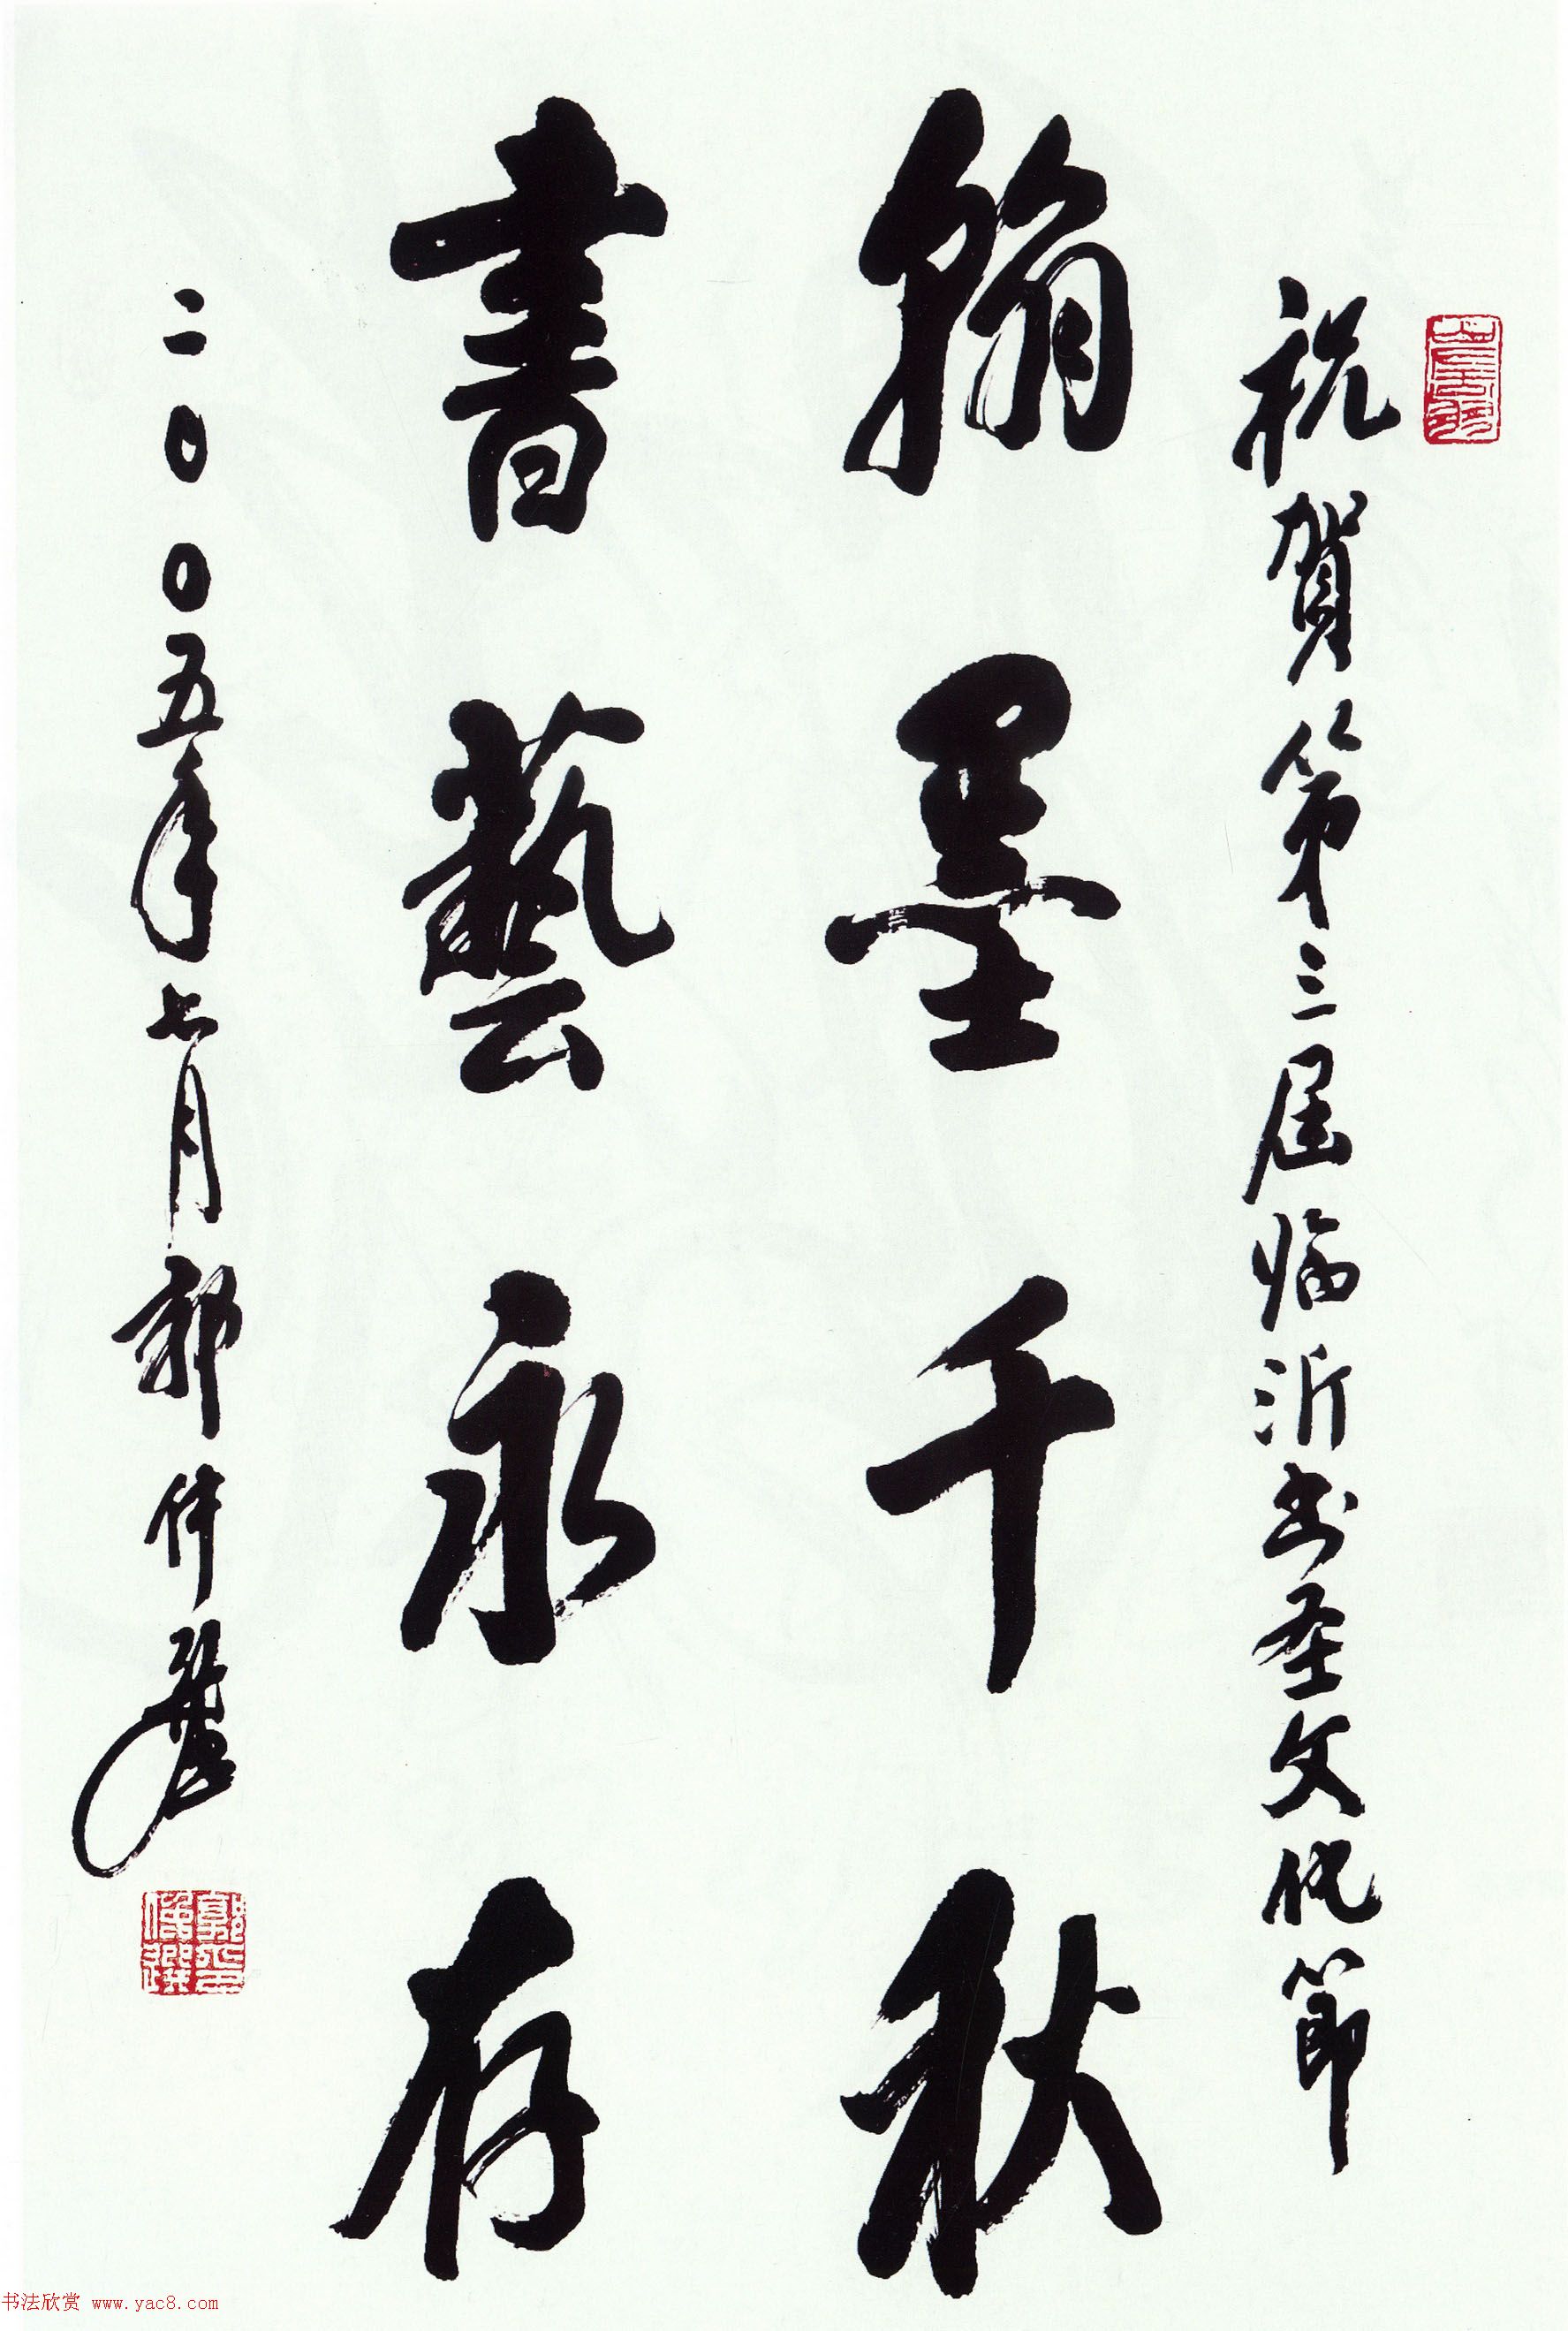 祝賀第三届临沂书圣文化節
翰墨千秋
書藝永存
二00五年七月郭伟選
书法欣赏 www.yac8.com